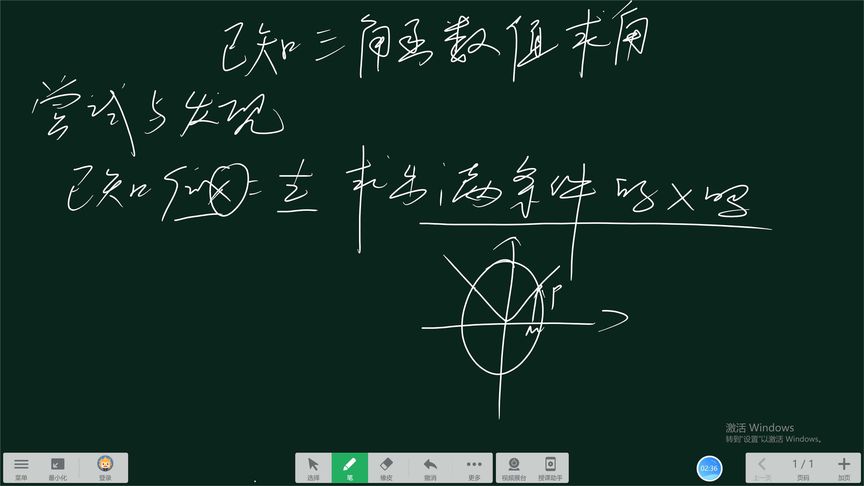 已知三角函数值求角
尝试与发现
已知sinx=½ 求出满条件的x的
P
M
激活 Windows
转到"设置"以激活 Windows。
菜单
最小化
登录
选择
笔
橡皮
撤消
更多
视频展台
授课助手
02:36
上一页
1/1
页码
加页